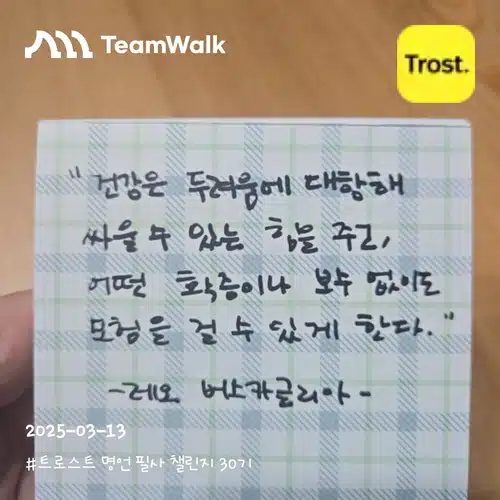 TeamWalk
Trost.
"건강은 두려움에 대항해
싸울 수 있는 힘을 주고,
어떤 확증이나 보수 없이도
모험을 걸 수 있게 한다."
-레오 버스카글리아-
2025-03-13
#트로스트 명언 필사 챌린지 30기